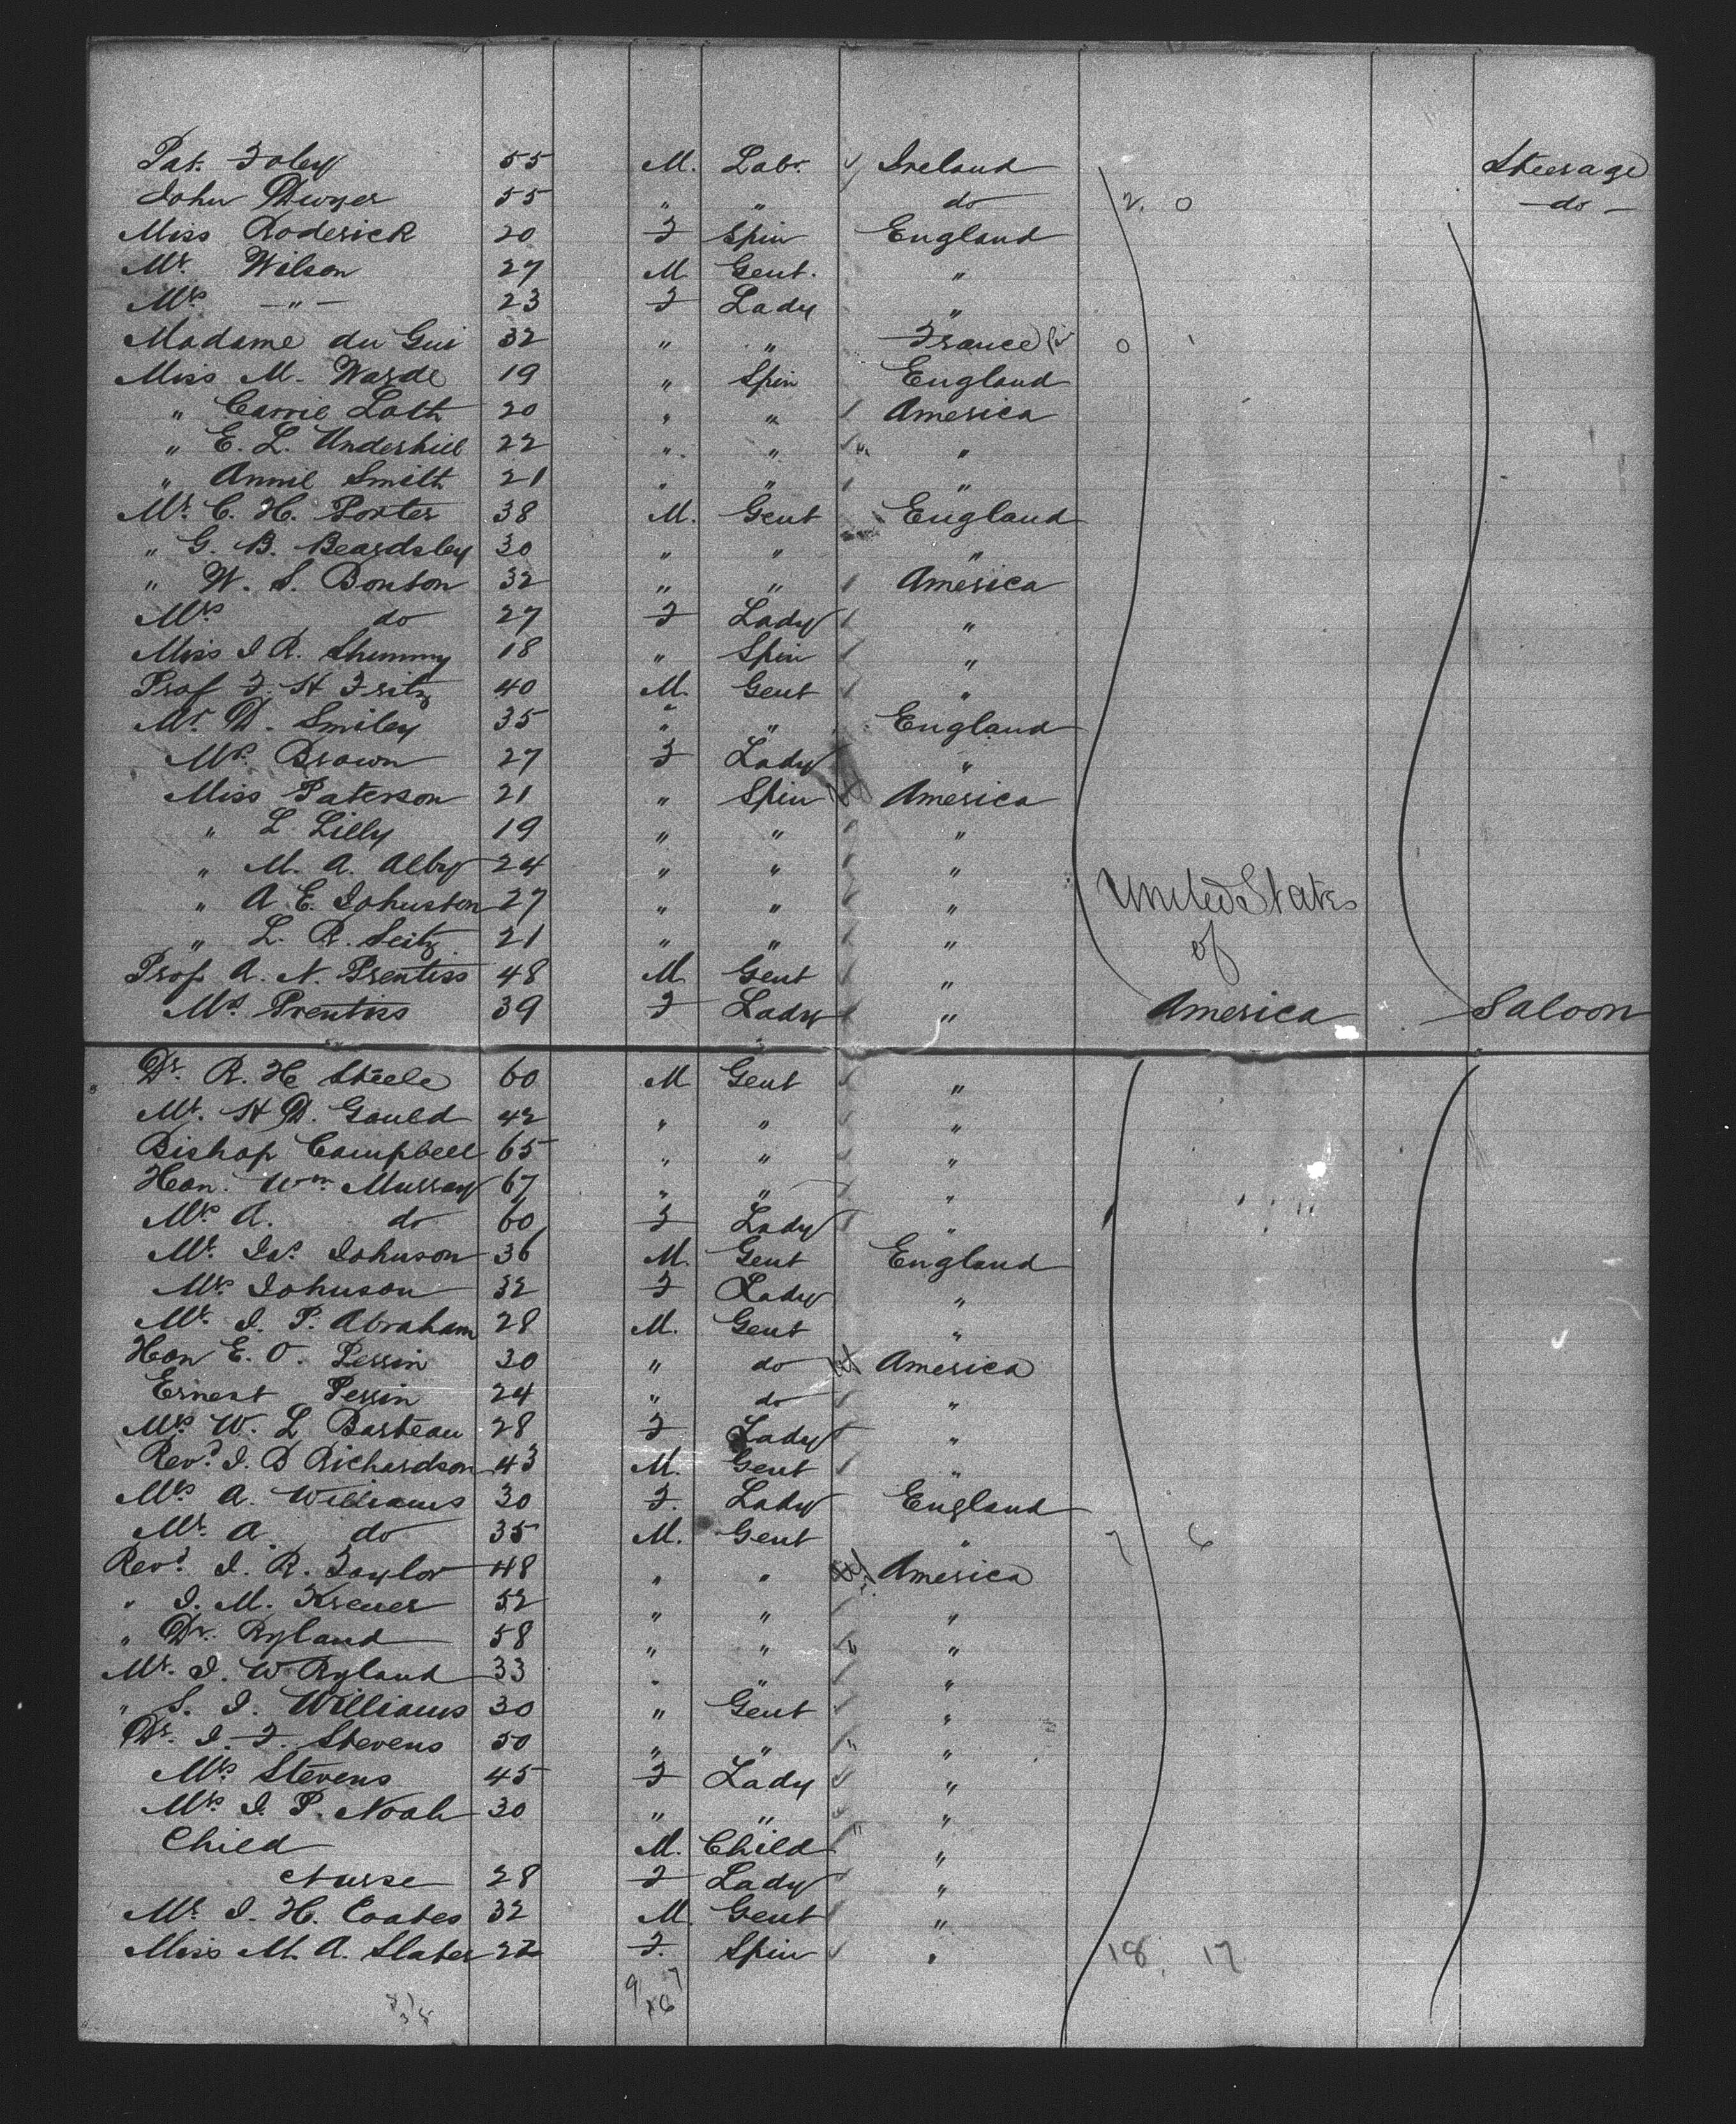 Pat. Foley 55 M. Labr. Ireland Steerage
John Dwyer 55 " " do 2. 0 -do-
Miss Roderick 20 F Spin England
Mr. Wilson 27 M Gent. "
Mrs -"- 23 F Lady "
Madame du Gui 32 " " France 0 1
Miss M. Warde 19 " Spin England
" Carrie Loth 20 " " America
" E. L. Underhill 22 " " "
" Annie Smith 21 " " "
Mr. C. H. Porter 38 M. Gent England
" G. B. Beardsley 30 " " "
" W. S. Bonton 32 " " America
Mrs do 27 F Lady "
Miss I R. Shimmy 18 " Spin "
Prof F. H Fritz 40 M. Gent "
Mr D. Smiley 35 " " England
Mrs. Brown 27 F Lady "
Miss Paterson 21 " Spin America
" L. Lilly 19 " " "
" M. A. Alby 24 " " "
" A E. Johnston 27 " " " United States
" L. R. Seitz 21 " " " of
Prof A. N. Prentiss 48 M. Gent "
Mrs Prentiss 39 F Lady " America Saloon
Dr. R. H Steele 60 M Gent "
Mr. H D. Gould 42 " " "
Bishop Campbell 65 " " "
Hon. Wm Murray 67 " " "
Mrs A. do 60 F Lady "
Mr. Jas. Johnson 36 M. Gent England
Mrs. Johnson 32 F Lady "
Mr. J. P. Abraham 28 M. Gent "
Hon E. O. Perrin 30 " do America
Ernest Perrin 24 " do "
Mrs. W. L Barteau 28 F Lady "
Revd. J. D Richardson 43 M. Gent "
Mrs A. Williams 30 F. Lady England
Mr. A. do 35 M. Gent " 7 6
Revd. J. R. Taylor 48 " " America
" J. M. Krener 52 " " "
" Dr. Ryland 58 " " "
Mr. J. W Ryland 33 " " "
" S. J. Williams 30 " Gent "
Dr. J. F. Stevens 50 " " "
Mrs Stevens 45 F Lady "
Mrs J. P. Noah 30 " " "
Child M. Child "
Nurse 28 F Lady "
Mr J. H. Coates 32 M. Gent "
Miss M. A. Slater 22 F. Spin " 18. 17